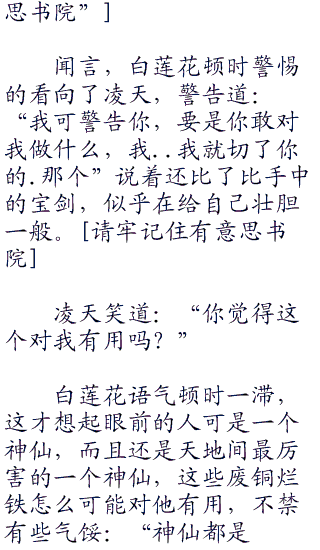 思书院”]
闻言，白莲花顿时警惕
的看向了凌天，警告道：
“我可警告你，要是你敢对
我做什么，我..我就切了你
的.那个”说着还比了比手中
的宝剑，似乎在给自己壮胆
一般。[请牢记住有意思书
院]
凌天笑道：“你觉得这
个对我有用吗？”
白莲花语气顿时一滞，
这才想起眼前的人可是一个
神仙，而且还是天地间最厉
害的一个神仙，这些废铜烂
铁怎么可能对他有用，不禁
有些气馁：“神仙都是